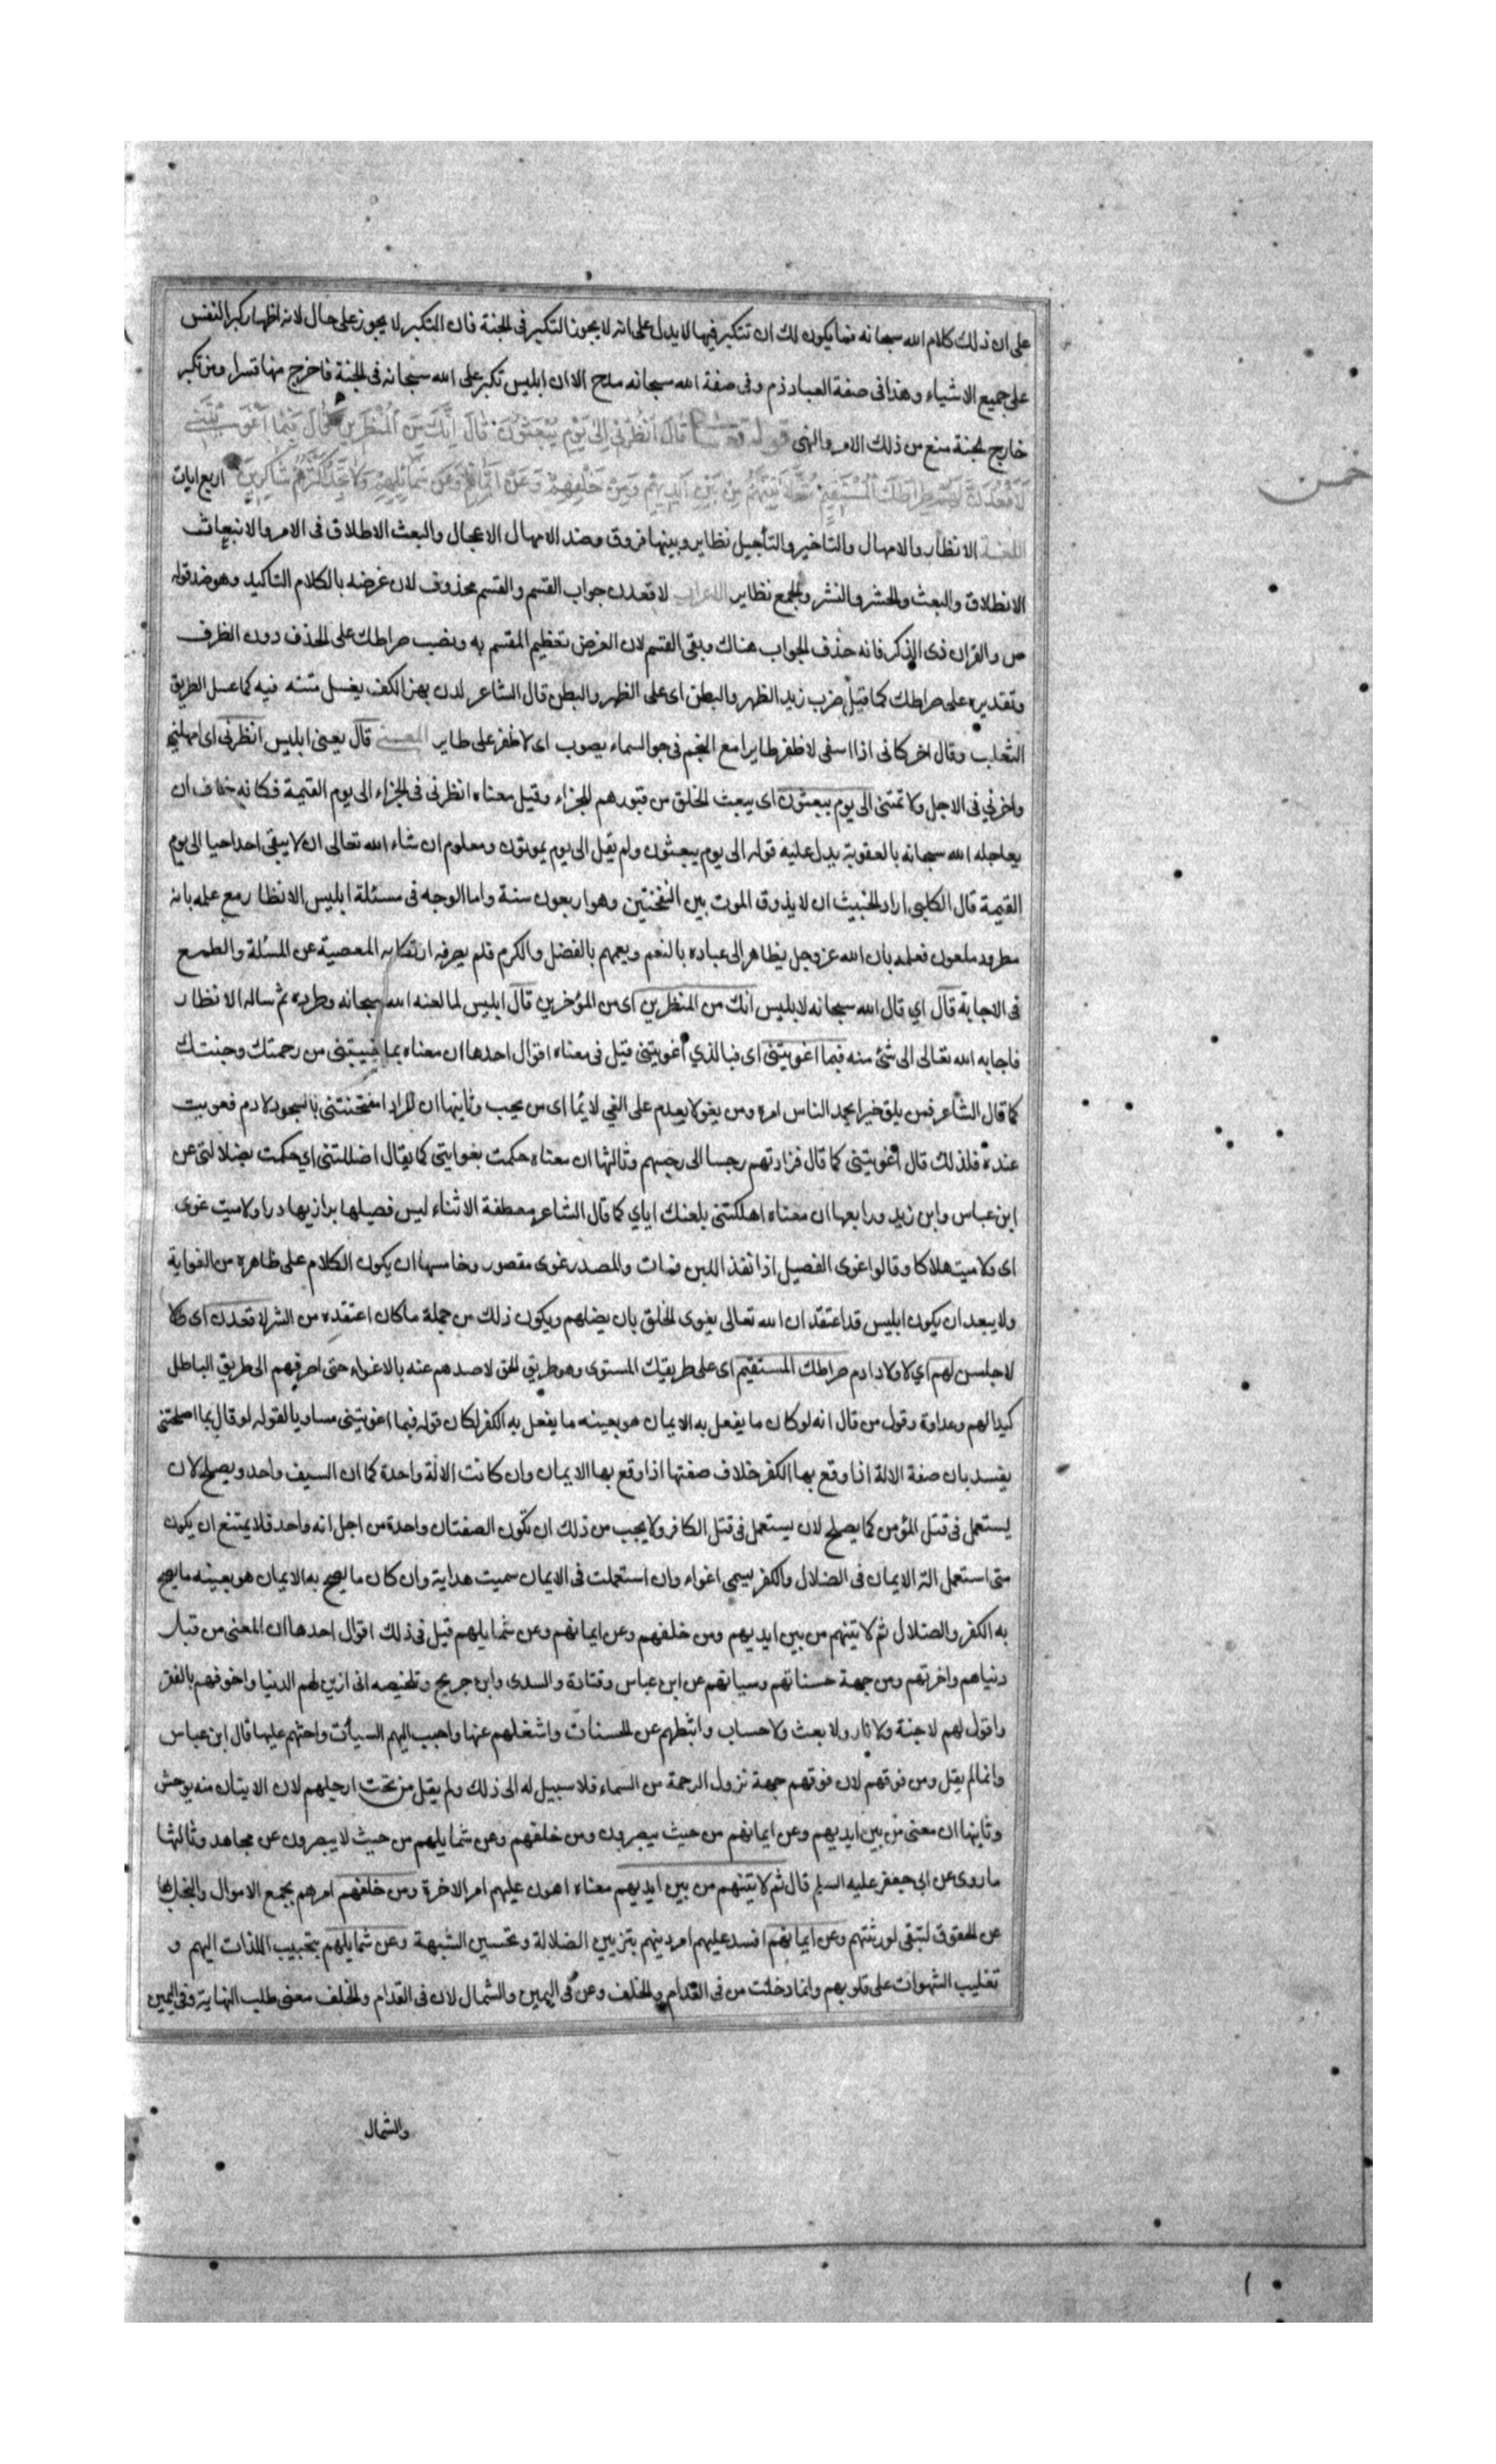 على ان ذلك كلام الله سبحانه فما يكون لك ان تتكبر فيها لا يدل على انه لا يجوز التكبر فى الجنة فان التكبر لا يجوز على حال لانه اظهار كبر النفس
على جميع الاشياء وهذا فى صفة العباد ذم وفى صفة الله سبحانه مدح الا ان ابليس تكبر على الله سبحانه فى الجنة فاخرج منها قسرا ومن تكبر
خارج الجنة منع من ذلك الامر والنهى قوله تعالى قَالَ أَنْظُرْنِي إِلَى يَوْمِ يُبْعَثُونَ قَالَ إِنَّكَ مِنَ الْمُنْظَرِينَ قَالَ فَبِمَا أَغْوَيْتَنِي
لَأَقْعُدَنَّ لَهُمْ صِرَاطَكَ الْمُسْتَقِيمَ ثُمَّ لَآتِيَنَّهُمْ مِنْ بَيْنِ أَيْدِيهِمْ وَمِنْ خَلْفِهِمْ وَعَنْ أَيْمَانِهِمْ وَعَنْ شَمَائِلِهِمْ وَلَا تَجِدُ أَكْثَرَهُمْ شَاكِرِينَ اربع ايات
اللغة الانظار والامهال والتاخير والتأجيل نظاير وبينها فروق وضد الامهال الاعجال والبعث الاطلاق فى الامر والانبعاث
الانطلاق والبعث والحشر والنشر والجمع نظاير الاعراب لاقعدن جواب القسم والقسم محذوف لان غرضه بالكلام التاكيد وهو ضد قوله
ص والقران ذى الذكر فانه حذف الجواب هناك وبقى القسم لان الغرض تعظيم المقسم به ونصب صراطك على الحذف دون الظرف
وتقديره على صراطك كما قيل ضرب زيد الظهر والبطن اى على الظهر والبطن قال الشاعر لدن بهز الكف يعسل متنه فيه كما عسل الطريق
الثعلب وقال اخر كانى اذا اسعى لاظفر طايرا مع النجم فى جو السماء يصوب اى لاظفر على طاير المعنى قال يعنى ابليس انظرنى اى امهلنى
واخرني فى الاجل ولا تمتنى الى يوم يبعثون اى يبعث الخلق من قبورهم للجزاء وقيل معناه انظرنى فى الجزاء الى يوم القيمة فكانه خاف ان
يعاجله الله سبحانه بالعقوبة يدل عليه قوله الى يوم يبعثون ولم يقل الى يوم يموتون ومعلوم ان شاء الله تعالى ان لا يبقى احدا حيا الى يوم
القيمة قال الكلبى اراد الخبيث ان لا يذوق الموت بين النفختين وهو اربعون سنة واما الوجه فى مسئلة ابليس الانظار مع علمه بانه
مطرود ملعون فعلمه بان الله عز وجل يظاهر الى عباده بالنعم ويعمهم بالفضل والكرم فلم يصرفه ارتكابه المعصية عن المسئلة والطمع
فى الاجابة قال اي قال الله سبحانه لابليس انك من المنظرين اى من المؤخرين قال ابليس لما لعنه الله سبحانه وطرده ثم ساله الانظار
فاجابه الله تعالى الى شئ منه فبما اغويتنى اى فبالذي أغويتنى قيل فى معناه اقوال احدها ان معناه بما خيبتنى من رحمتك وجنتك
كما قال الشاعر فمن يلق خيرا يحمد الناس امره ومن يغو لا يعدم على الغي لايما اى من يخب وثانيها ان المراد امتحنتنى بالسجود لادم فغويت
عنده فلذلك قال أغويتنى كما قال فزادتهم رجسا الى رجسهم وثالثها ان معناه حكمت بغوايتى كما يقال اضللتنى اي حكمت بضلالتى عن
ابن عباس وابن زيد ورابعها ان معناه اهلكتنى بلعنك اياي كما قال الشاعر معطفة الاثناء ليس فصيلها برازيها درا ولا ميت غوى
اى ولا ميت هلاكا وقالوا غوى الفصيل اذا نفذ اللبن فمات والمصدر غوى مقصور وخامسها ان يكون الكلام على ظاهره من الغواية
ولا يبعد ان يكون ابليس قد اعتقد ان الله تعالى يغوى الخلق بان يضلهم ويكون ذلك من جملة ما كان اعتقده من الشر لاقعدن اى
لاجلسن لهم اي لاولاد ادم صراطك المستقيم اى على طريقك المستوى وهو طريق الحق لاصدهم عنه بالاغواء حتى اصرفهم الى طريق الباطل
كيدا لهم وعداوة وقول من قال انه لو كان ما يفعل به الايمان هو بعينه ما يفعل به الكفر لكان قوله فبما اغويتنى مساويا لقوله لو قال بما اصلحتنى
يفسد بان صفة الالة اذا وقع بها الكفر خلاف صفتها اذا وقع بها الايمان وان كانت الالة واحدة كما ان السيف واحد ويصلح لان
يستعمل فى قتل المؤمن كما يصلح لان يستعمل فى قتل الكافر ولا يجب من ذلك ان تكون الصفتان واحدة من اجل انه واحد فلا يمتنع ان يكون
متى استعمل الة الايمان فى الضلال والكفر يسمى اغواء وان استعملت فى الايمان سميت هداية وان كان ما يصح به الايمان هو بعينه ما يصح
به الكفر والضلال ثم لاتينهم من بين ايديهم ومن خلفهم وعن ايمانهم وعن شمايلهم قيل فى ذلك اقوال احدها ان المعنى من قبل
دنياهم واخرتهم ومن جهة حسناتهم وسياتهم عن ابن عباس وقتادة والسدى وابن جريج وتلخيصه انى ازين لهم الدنيا واخوفهم بالفقر
واقول لهم لا جنة ولا نار ولا بعث ولا حساب واثبطهم عن الحسنات واشغلهم عنها واحبب اليهم السيأت واحثهم عليها قال ابن عباس
وانما لم يقل ومن فوقهم لان فوقهم جهة نزول الرحمة من السماء فلا سبيل له الى ذلك ولم يقل من تحت ارجلهم لان الايتان منه يوحش
وثانيها ان معنى من بين ايديهم وعن ايمانهم من حيث يبصرون ومن خلفهم وعن شمايلهم من حيث لا يبصرون عن مجاهد وثالثها
ما روى عن ابى جعفر عليه السلم قال ثم لاتينهم من بين ايديهم معناه اهون عليهم امر الاخرة ومن خلفهم امرهم بجمع الاموال والبخل بها
عن الحقوق لتبقى لورثتهم وعن ايمانهم افسد عليهم امر دينهم بتزيين الضلالة وتحسين الشبهة وعن شمايلهم بتحبيب اللذات اليهم و
تغليب الشهوات على قلوبهم وانما دخلت من فى القدام والخلف وعن فى اليمين والشمال لان فى القدام والخلف معنى طلب النهاية وفى اليمين
والشمال